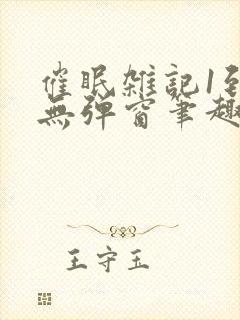 催眠雑記1到
無彈窗筆趣
王守玉